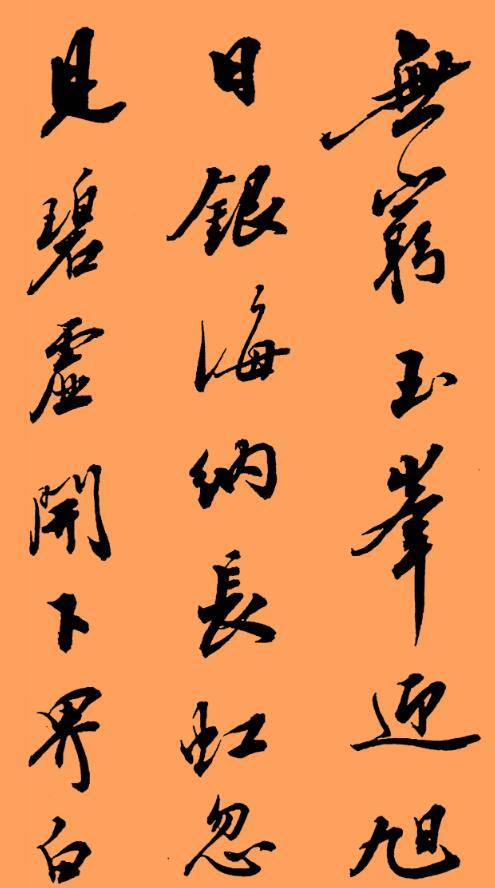 無窮玉峯迎旭
日銀海納長虹忽
見碧虛開下界白